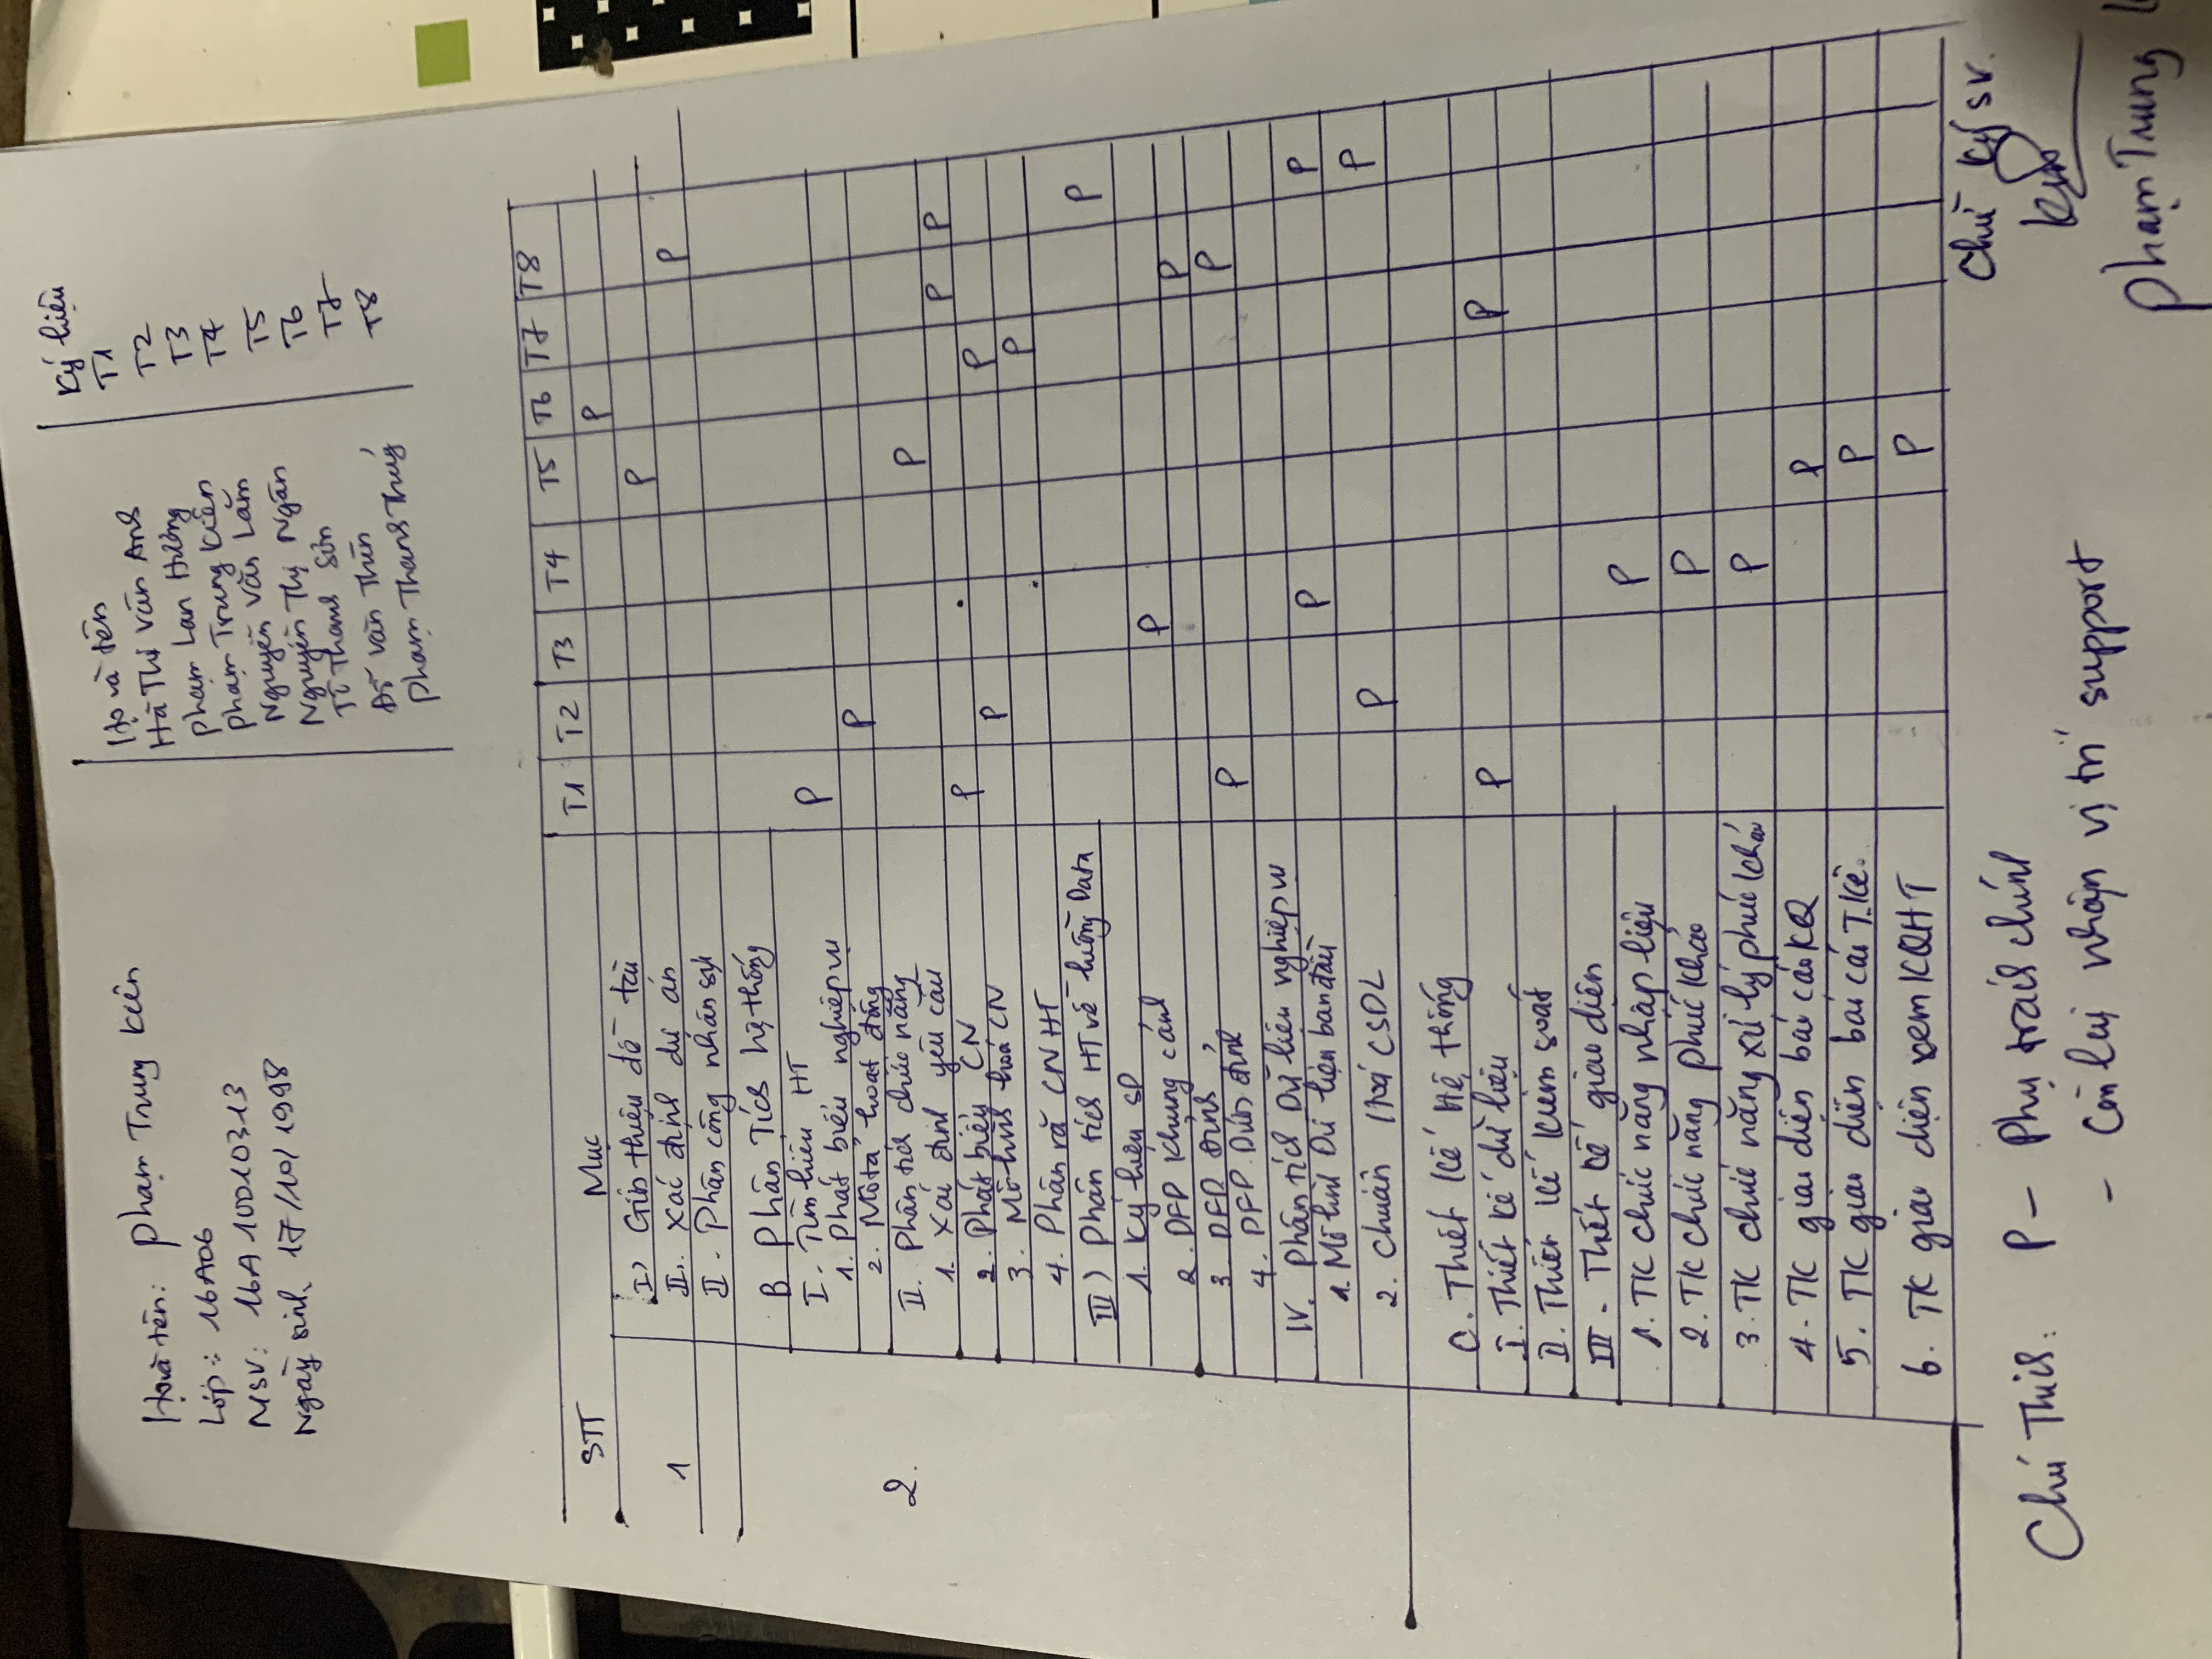 Họ và tên: Phạm Trung Kiên
Lớp: 16A06
MSV: 16A10010313
Ngày sinh 17/10/1998
Họ và tên Ký hiệu
Hà Thị Vân Anh T1
Phạm Lan Hương T2
Phạm Trung Kiên T3
Nguyễn Văn Lâm T4
Nguyễn Thị Ngân T5
Thanh Sơn T6
Đỗ Văn Thìn T7
Phạm Thanh Thuý T8
STT Mục T1 T2 T3 T4 T5 T6 T7 T8
I) Giới thiệu đề tài P
1 II. Xác định dự án P
II - Phân công nhân sự P
B Phân Tích hệ thống
I. Tìm hiểu HT
1. Phát biểu nghiệp vụ P
2. Mô tả hoạt động P
2. II. Phân tích chức năng
1. Xác định yêu cầu P
2. Phát biểu CN P P P
3. Mô hình hoá CN P P
4. Phân rã CN HT P
III) Phân tích HT về luồng Data
1. Ký hiệu SD P
2. DFD khung cảnh P
3. DFD đỉnh P
4. DFD Dưới đỉnh P P
IV. Phân tích Dữ liệu nghiệp vụ
1. Mô hình Dữ liệu ban đầu P P
2. Chuẩn Hoá CSDL P P
C. Thiết Kế Hệ thống
I. Thiết kế dữ liệu P P
II. Thiết Kế Kiểm soát
III - Thiết Kế giao diện
1. TK chức năng nhập liệu P
2. TK chức năng phúc khảo P
3. TK chức năng xử lý phúc khảo P
4 - TK giao diện báo cáo KQ P
5. TK giao diện báo cáo T.Kê. P
6. TK giao diện xem KQHT P
Chú Thích: P - Phụ trách chính
- Còn lại nhận vị trí support
Chữ Ký SV.
Phạm Trung